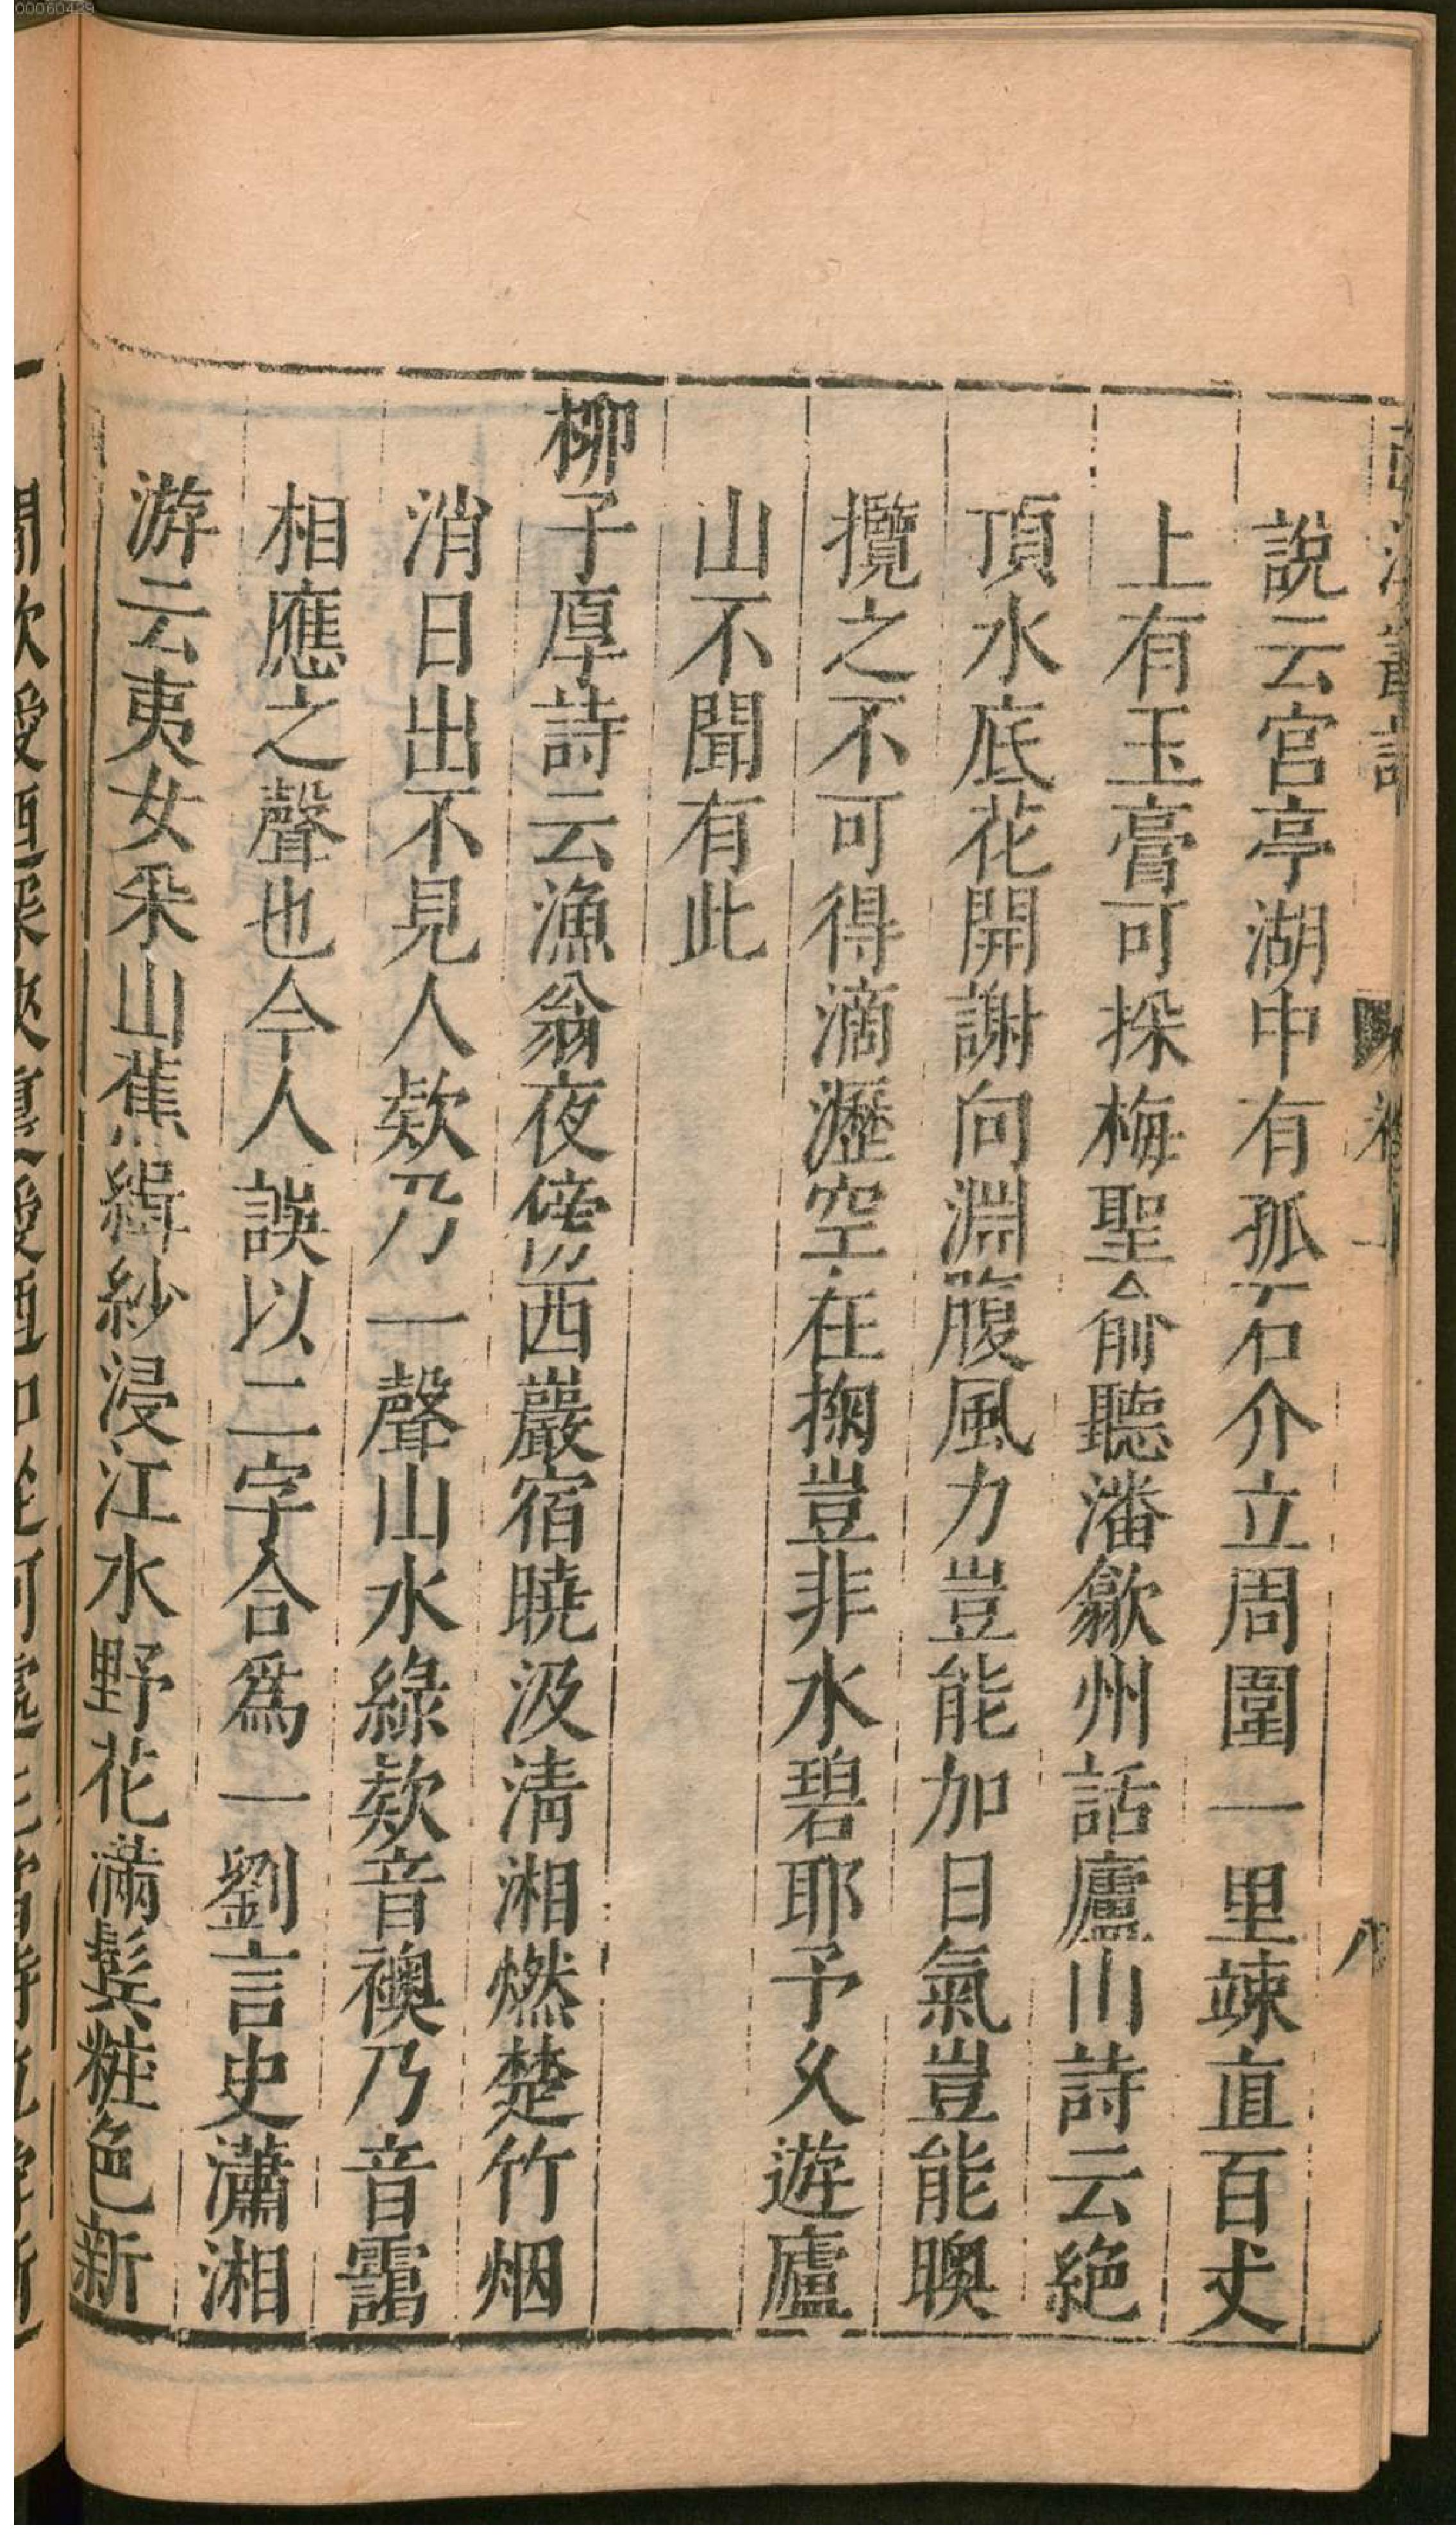 00060429
說云宫亭湖中有孤石介立周圍一里竦直百丈
上有玉膏可採梅聖俞聽潘歙州話廬山詩云絶
頂水底花開謝向淵腹風力豈能加日氣豈能㬉
攬之不可得滴瀝空在掬豈非水碧耶予久遊廬
山不聞有此
柳子厚詩云漁翁夜傍西巖宿曉汲清湘燃楚竹烟
消日出不見人欸乃一聲山水綠欸音襖乃音靄
相應之聲也今人誤以二字合爲一劉言史瀟湘
游云夷女采山蕉緝紗浸江水野花滿髮粧色新